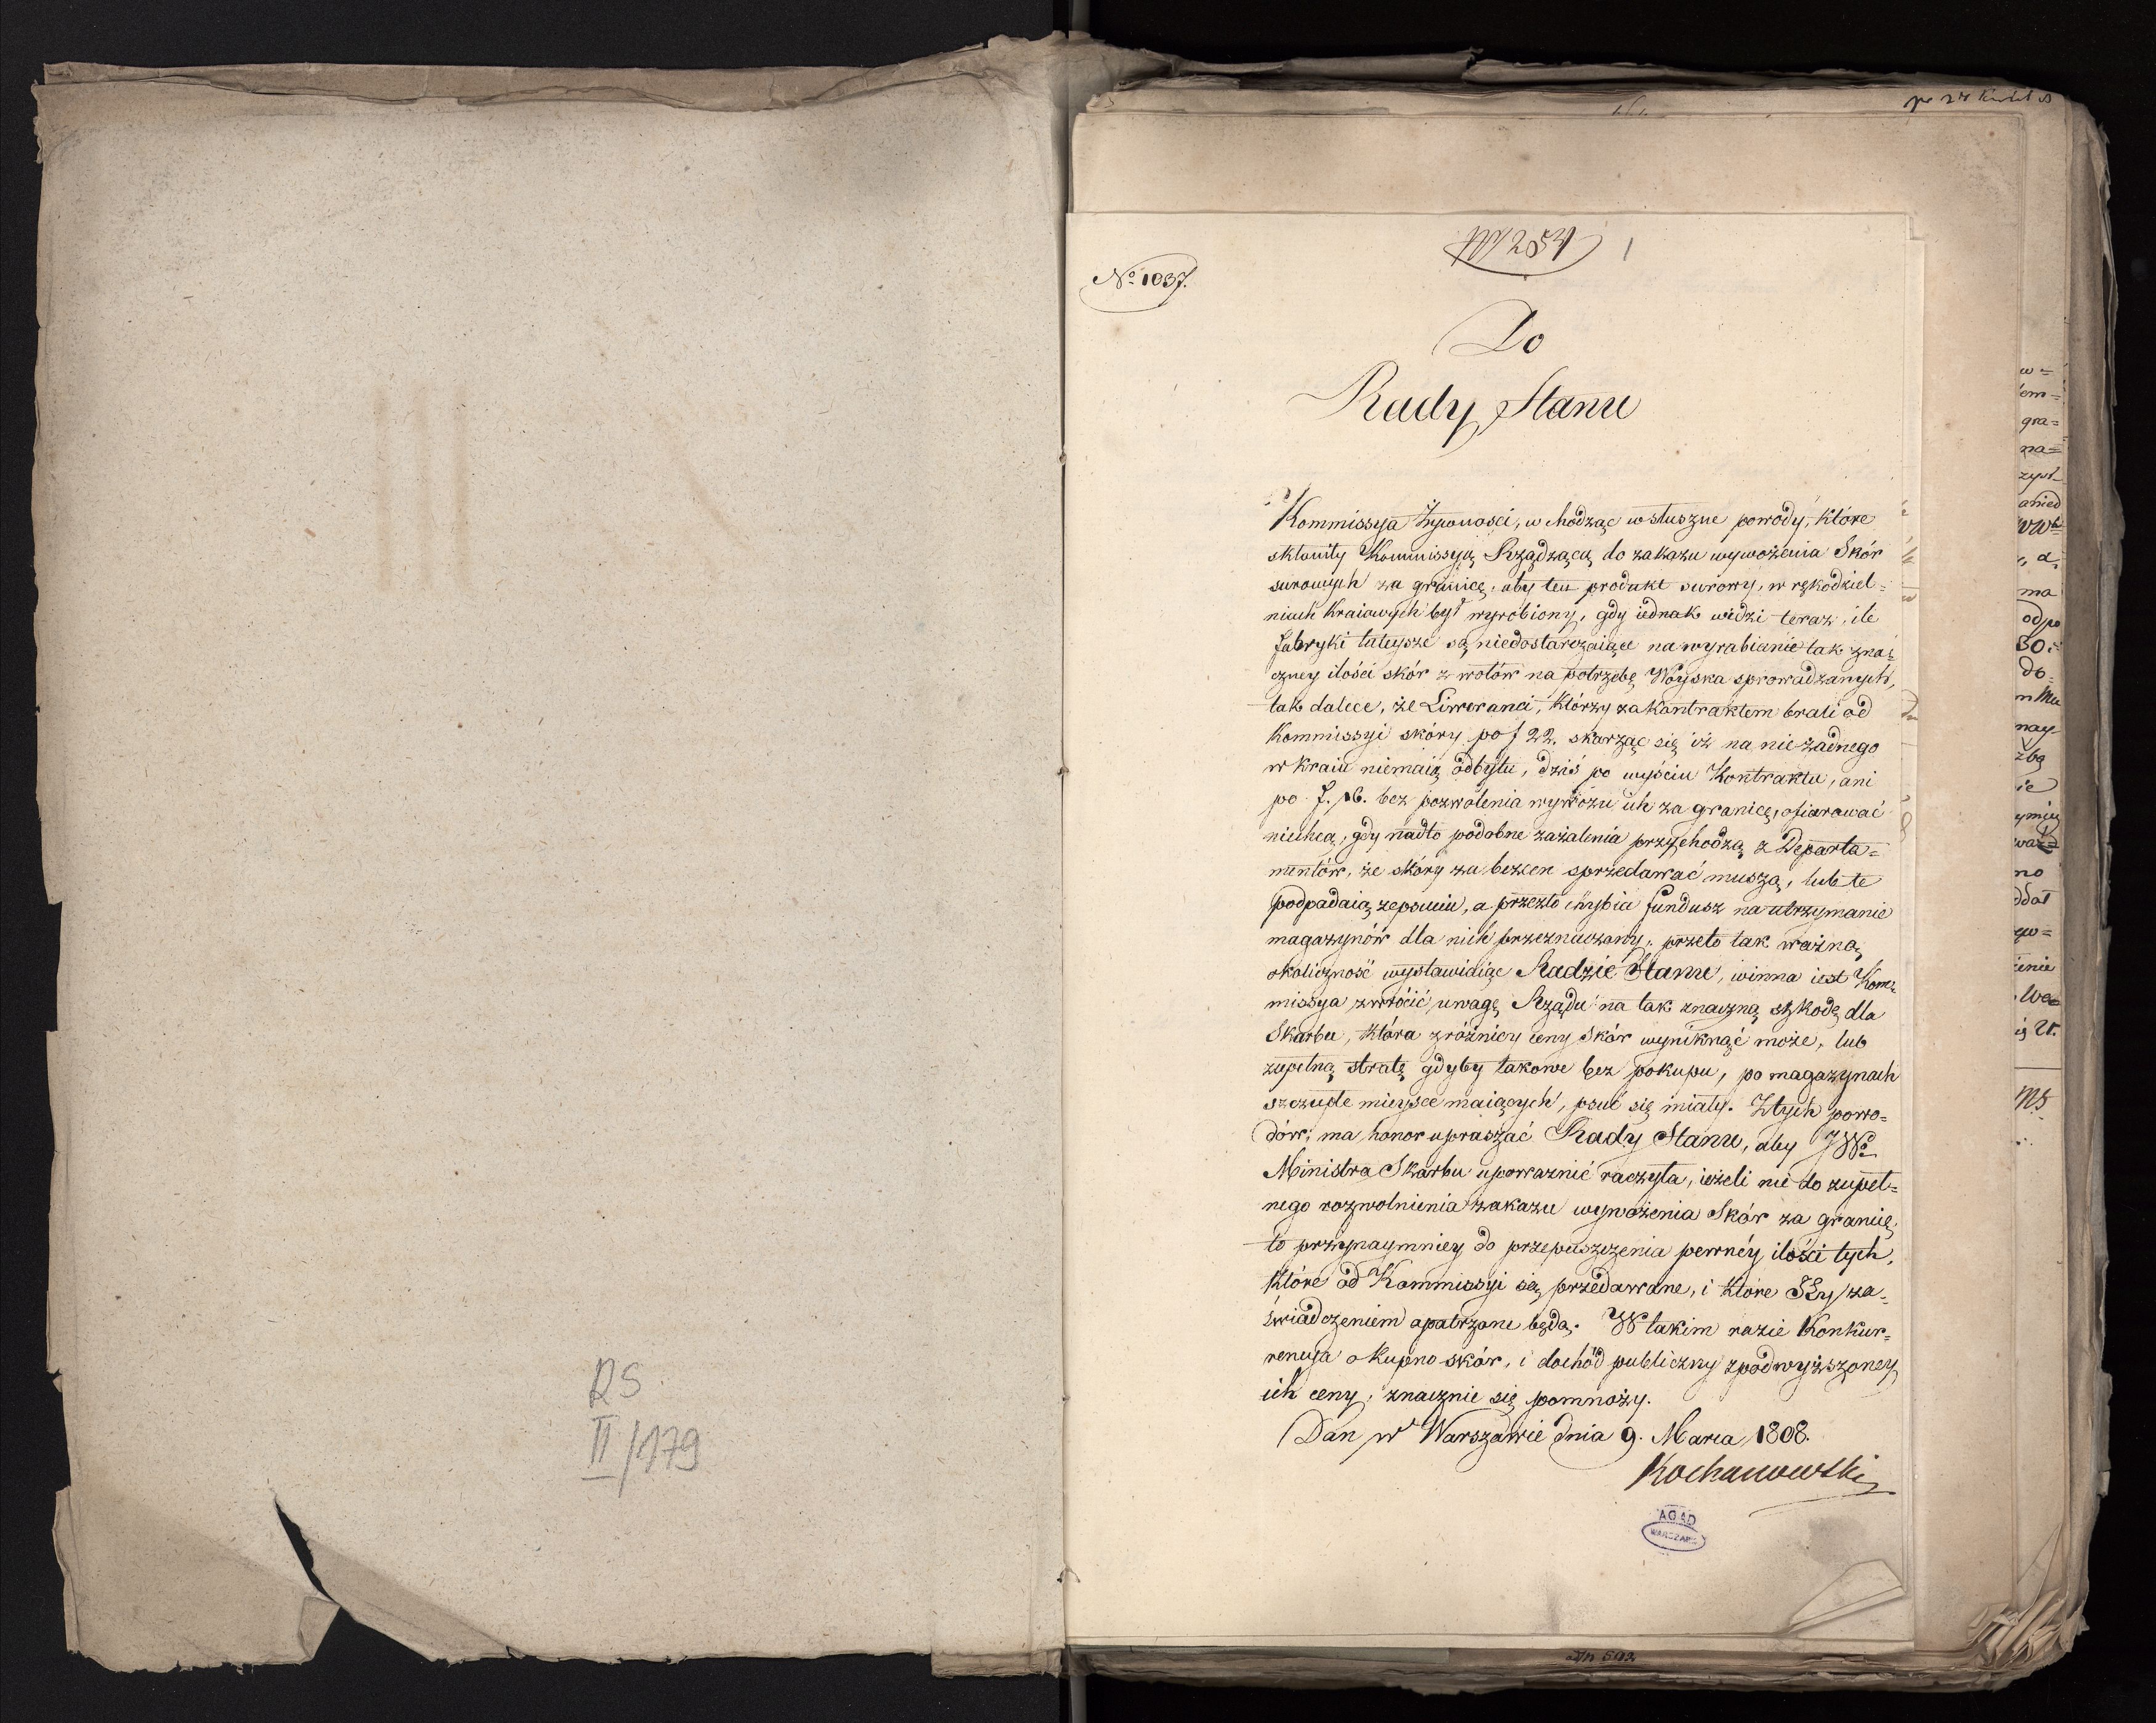 RS
II/179
No 1037.
1
Do
Rady Stanu
Kommissya Żywnosci, wchodząc w słuszne powody, które
skłoniły Kommissyą Rządzącą do zakazu wywożenia Skór
surowych za granicę, aby ten produkt surowy, w rękodziel=
niach kraiowych był wyrobiony, gdy iednak widzi teraz, ile
fabryki tuteysze są niedostarczaiące na wyrabianie tak zna=
czney ilości skór z wołów na potrzebę Woyska sprowadzanych,
tak dalece, że Liweranci, którzy za kontraktem brali od
Kommissyi skóry po f 22. skarżąc się iż na nie żadnego
w kraiu niemaią odbytu, dziś po wyściu Kontraktu, ani
po f. 16. bez pozwolenia wywozu ich za granicę, ofiarować
niechcą, gdy nadto podobne zażalenia przychodzą z Departa=
mentów, że skóry za bezcen sprzedawać muszą, lub te
podpadaią zepsuciu, a przezto chybia fundusz na utrzymanie
magazynów dla nich przeznaczony; przeto tak ważną
okoliczność wystawiaiąc Radzie Stanu, winna iest Kom=
missya zwrócić uwagę Rządu na tak znaczną szkodę dla
Skarbu, która z różnicy ceny Skór wyniknąć może, lub
zupełną stratę gdyby takowe bez pokupu, po magazynach
szczupłe mieysce maiących, psuć się miały. Z tych powo=
dów; ma honor upraszać Rady Stanu, aby JWo
Ministra Skarbu upoważnić raczyła, ieżeli nie do zupeł=
nego rozwolnienia zakazu wywożenia Skór za granicę,
to przynaymniey do przepuszczenia pewnéy ilości tych,
które od Kommissyi są przedawane, i które Jey za=
świadczeniem opatrzone będą. W takim razie Konkur=
rencya o kupno skór, i dochód publiczny z podwyższoney
ich ceny, znacznie się pomnoży.
Dan w Warszawie dnia 9. Marca 1808.
Kochanowski
AGAD
WARSZAWA
w=
em=
gra=
na=
zyst=
ma
odpo
30.
do
nay
zbę
ie
no
ddał
enie